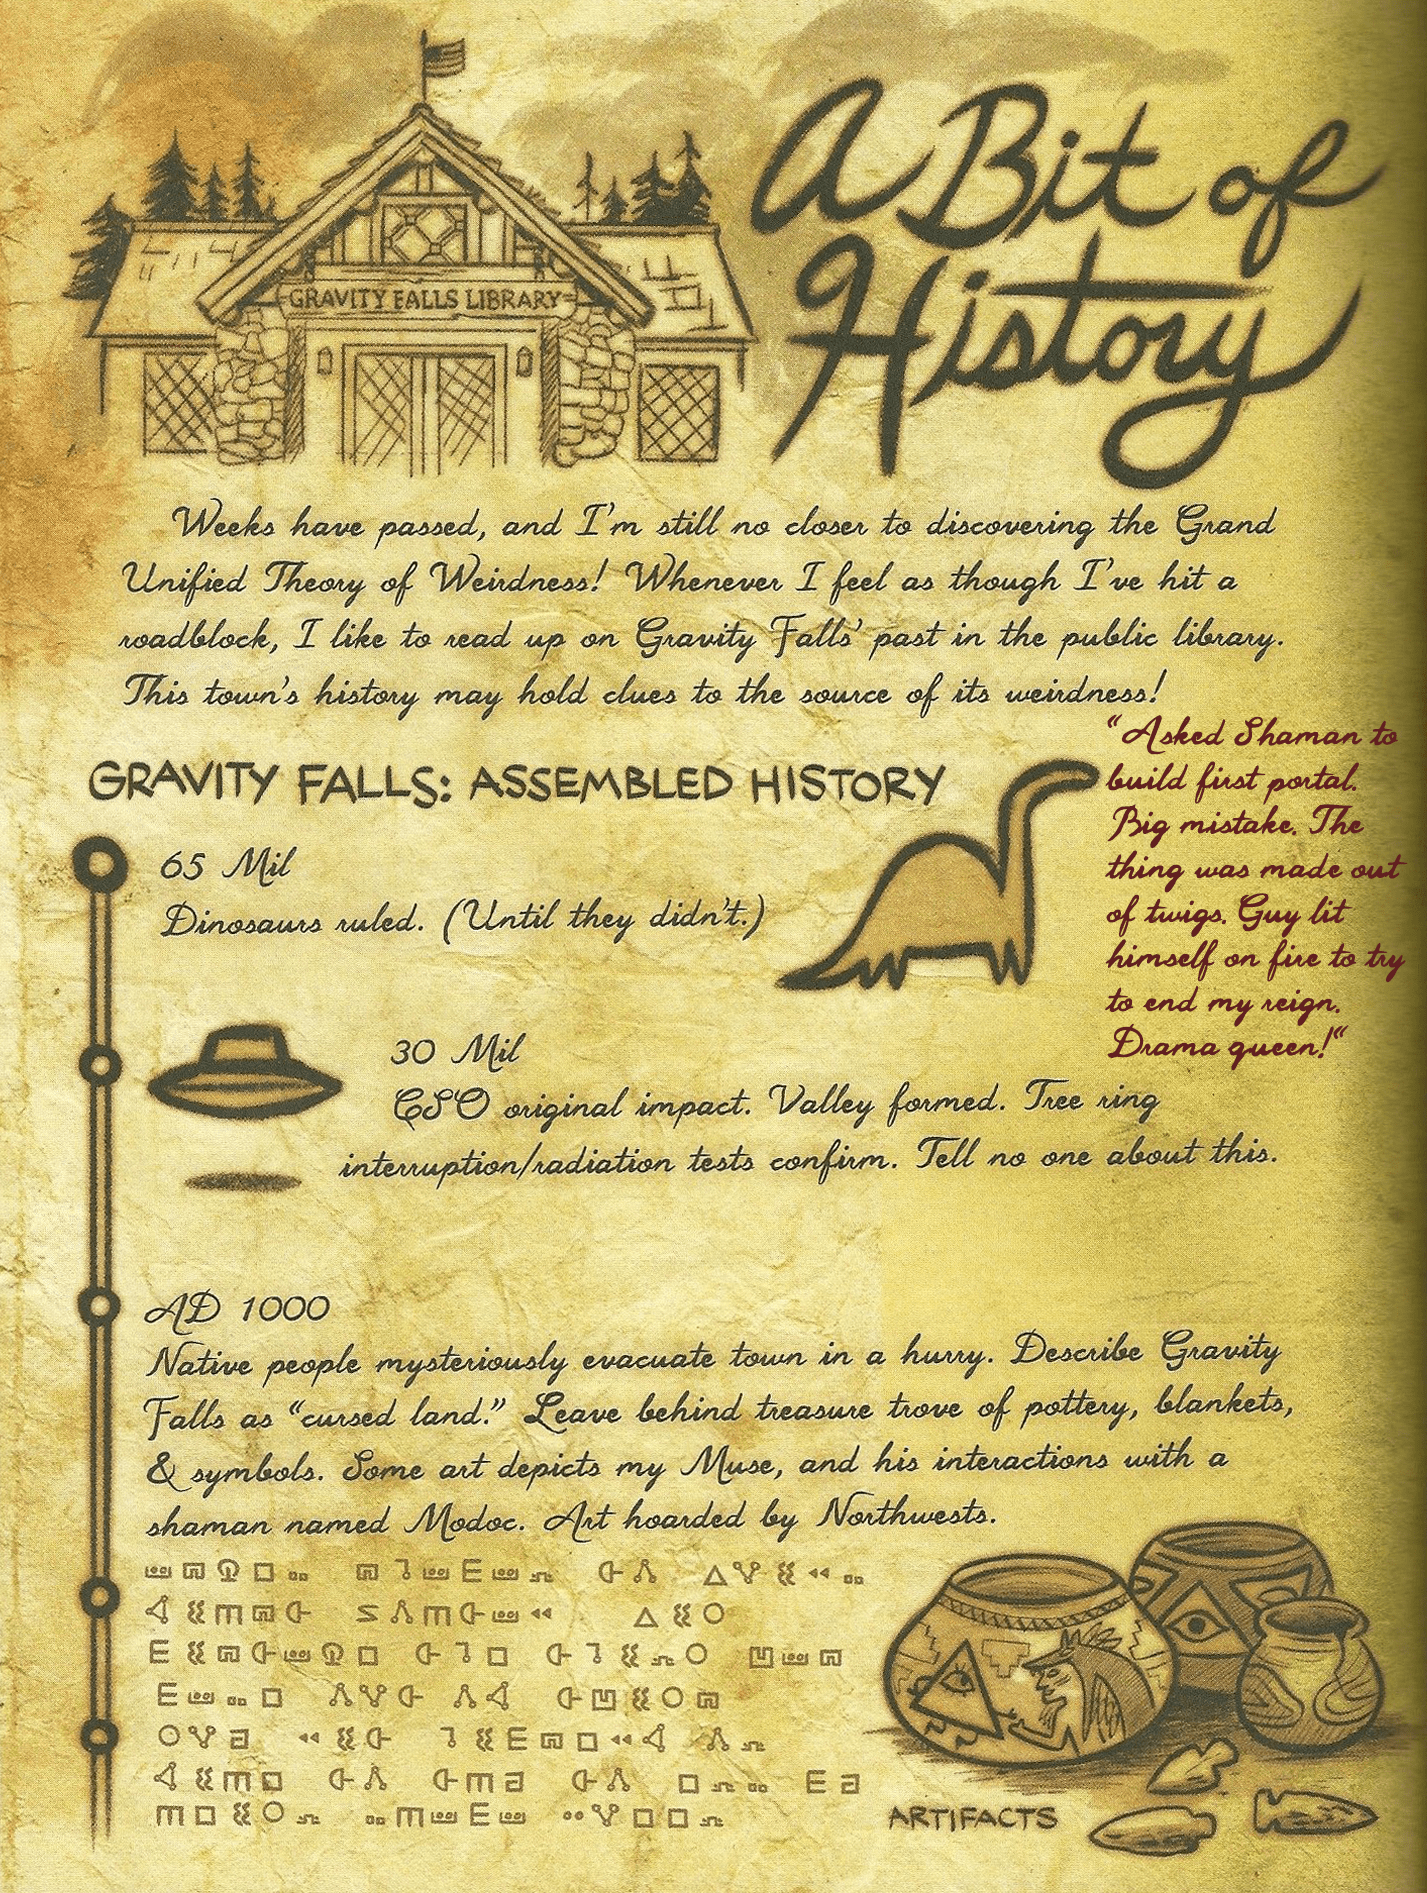 GRAVITY FALLS LIBRARY
A Bit of
History
Weeks have passed, and I'm still no closer to discovering the Grand
Unified Theory of Weirdness! Whenever I feel as though I've hit a
roadblock, I like to read up on Gravity Falls' past in the public library.
This town's history may hold clues to the source of its weirdness!
"Asked Shaman to
build first portal.
Big mistake. The
thing was made out
of twigs. Guy lit
himself on fire to try
to end my reign.
Drama queen!"
GRAVITY FALLS: ASSEMBLED HISTORY
65 Mil
Dinosaurs ruled. (Until they didn't.)
30 Mil
CSO original impact. Valley formed. Tree ring
interruption/radiation tests confirm. Tell no one about this.
AD 1000
Native people mysteriously evacuate town in a hurry. Describe Gravity
Falls as "cursed land." Leave behind treasure trove of pottery, blankets,
& symbols. Some art depicts my Muse, and his interactions with a
shaman named Modoc. Art hoarded by Northwests.
ARTIFACTS